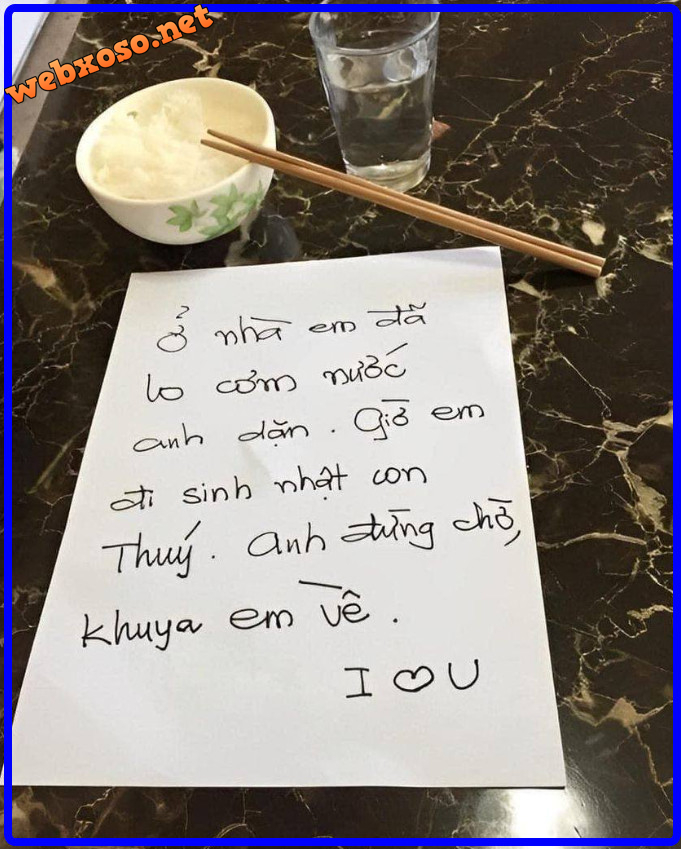 webxoso.net
Ở nhà em đã
lo cơm nước
anh dặn. Giờ em
đi sinh nhật con
Thuý. Anh đừng chờ,
khuya em về.
I ♡ U